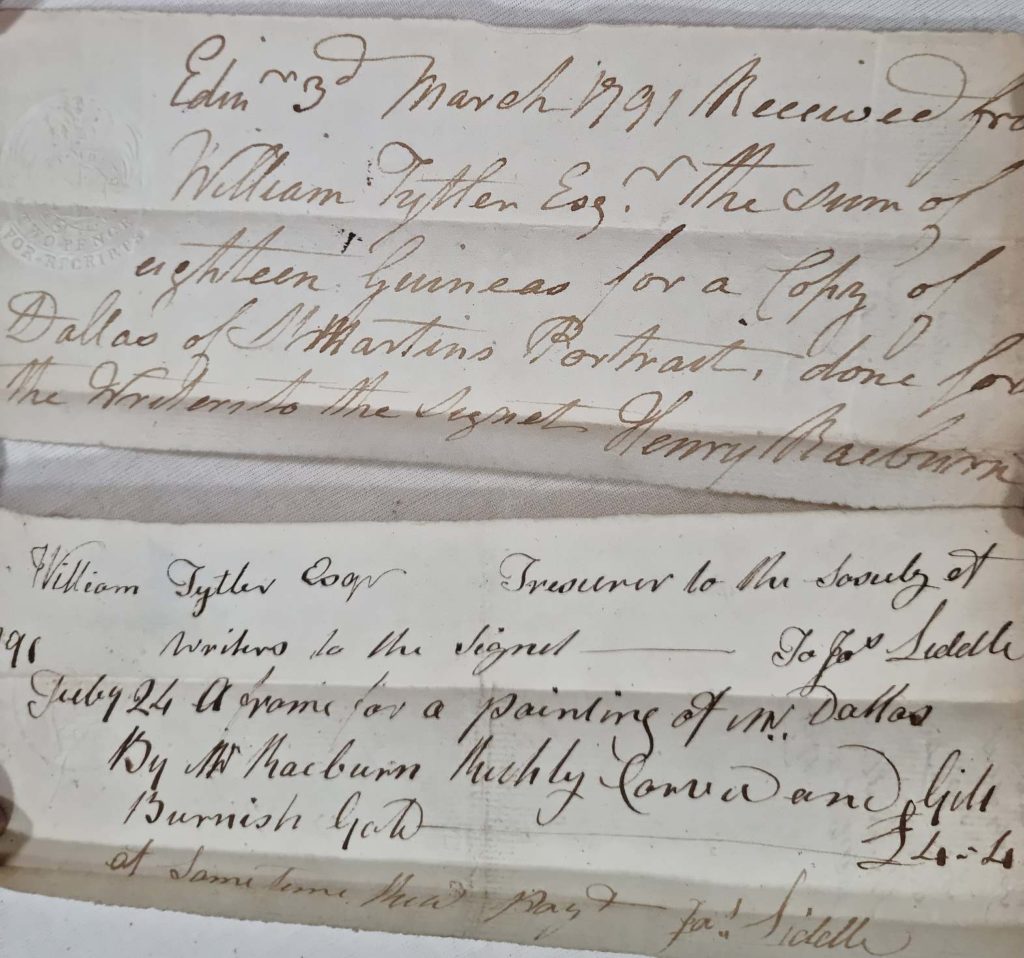 Edinr 3d March 1791 Received fro
William Tytler Esqr. the sum of
eighteen Guineas for a Copy of
Dallas of St Martins Portrait, done for
the Writers to the signet Henry Raeburn
TWO PENCE
FOR RECEIPTS
William Tytler Esqr Tresurer to the Sosiety of
writers to the signet — To Jas Liddle
791
Feeby 24 A frame for a painting of Mr. Dallas
By Mr Raeburn Richly Carved and Gilt
Burnish Gold — £4-4
at Same time Recd Payt Jas. Liddle